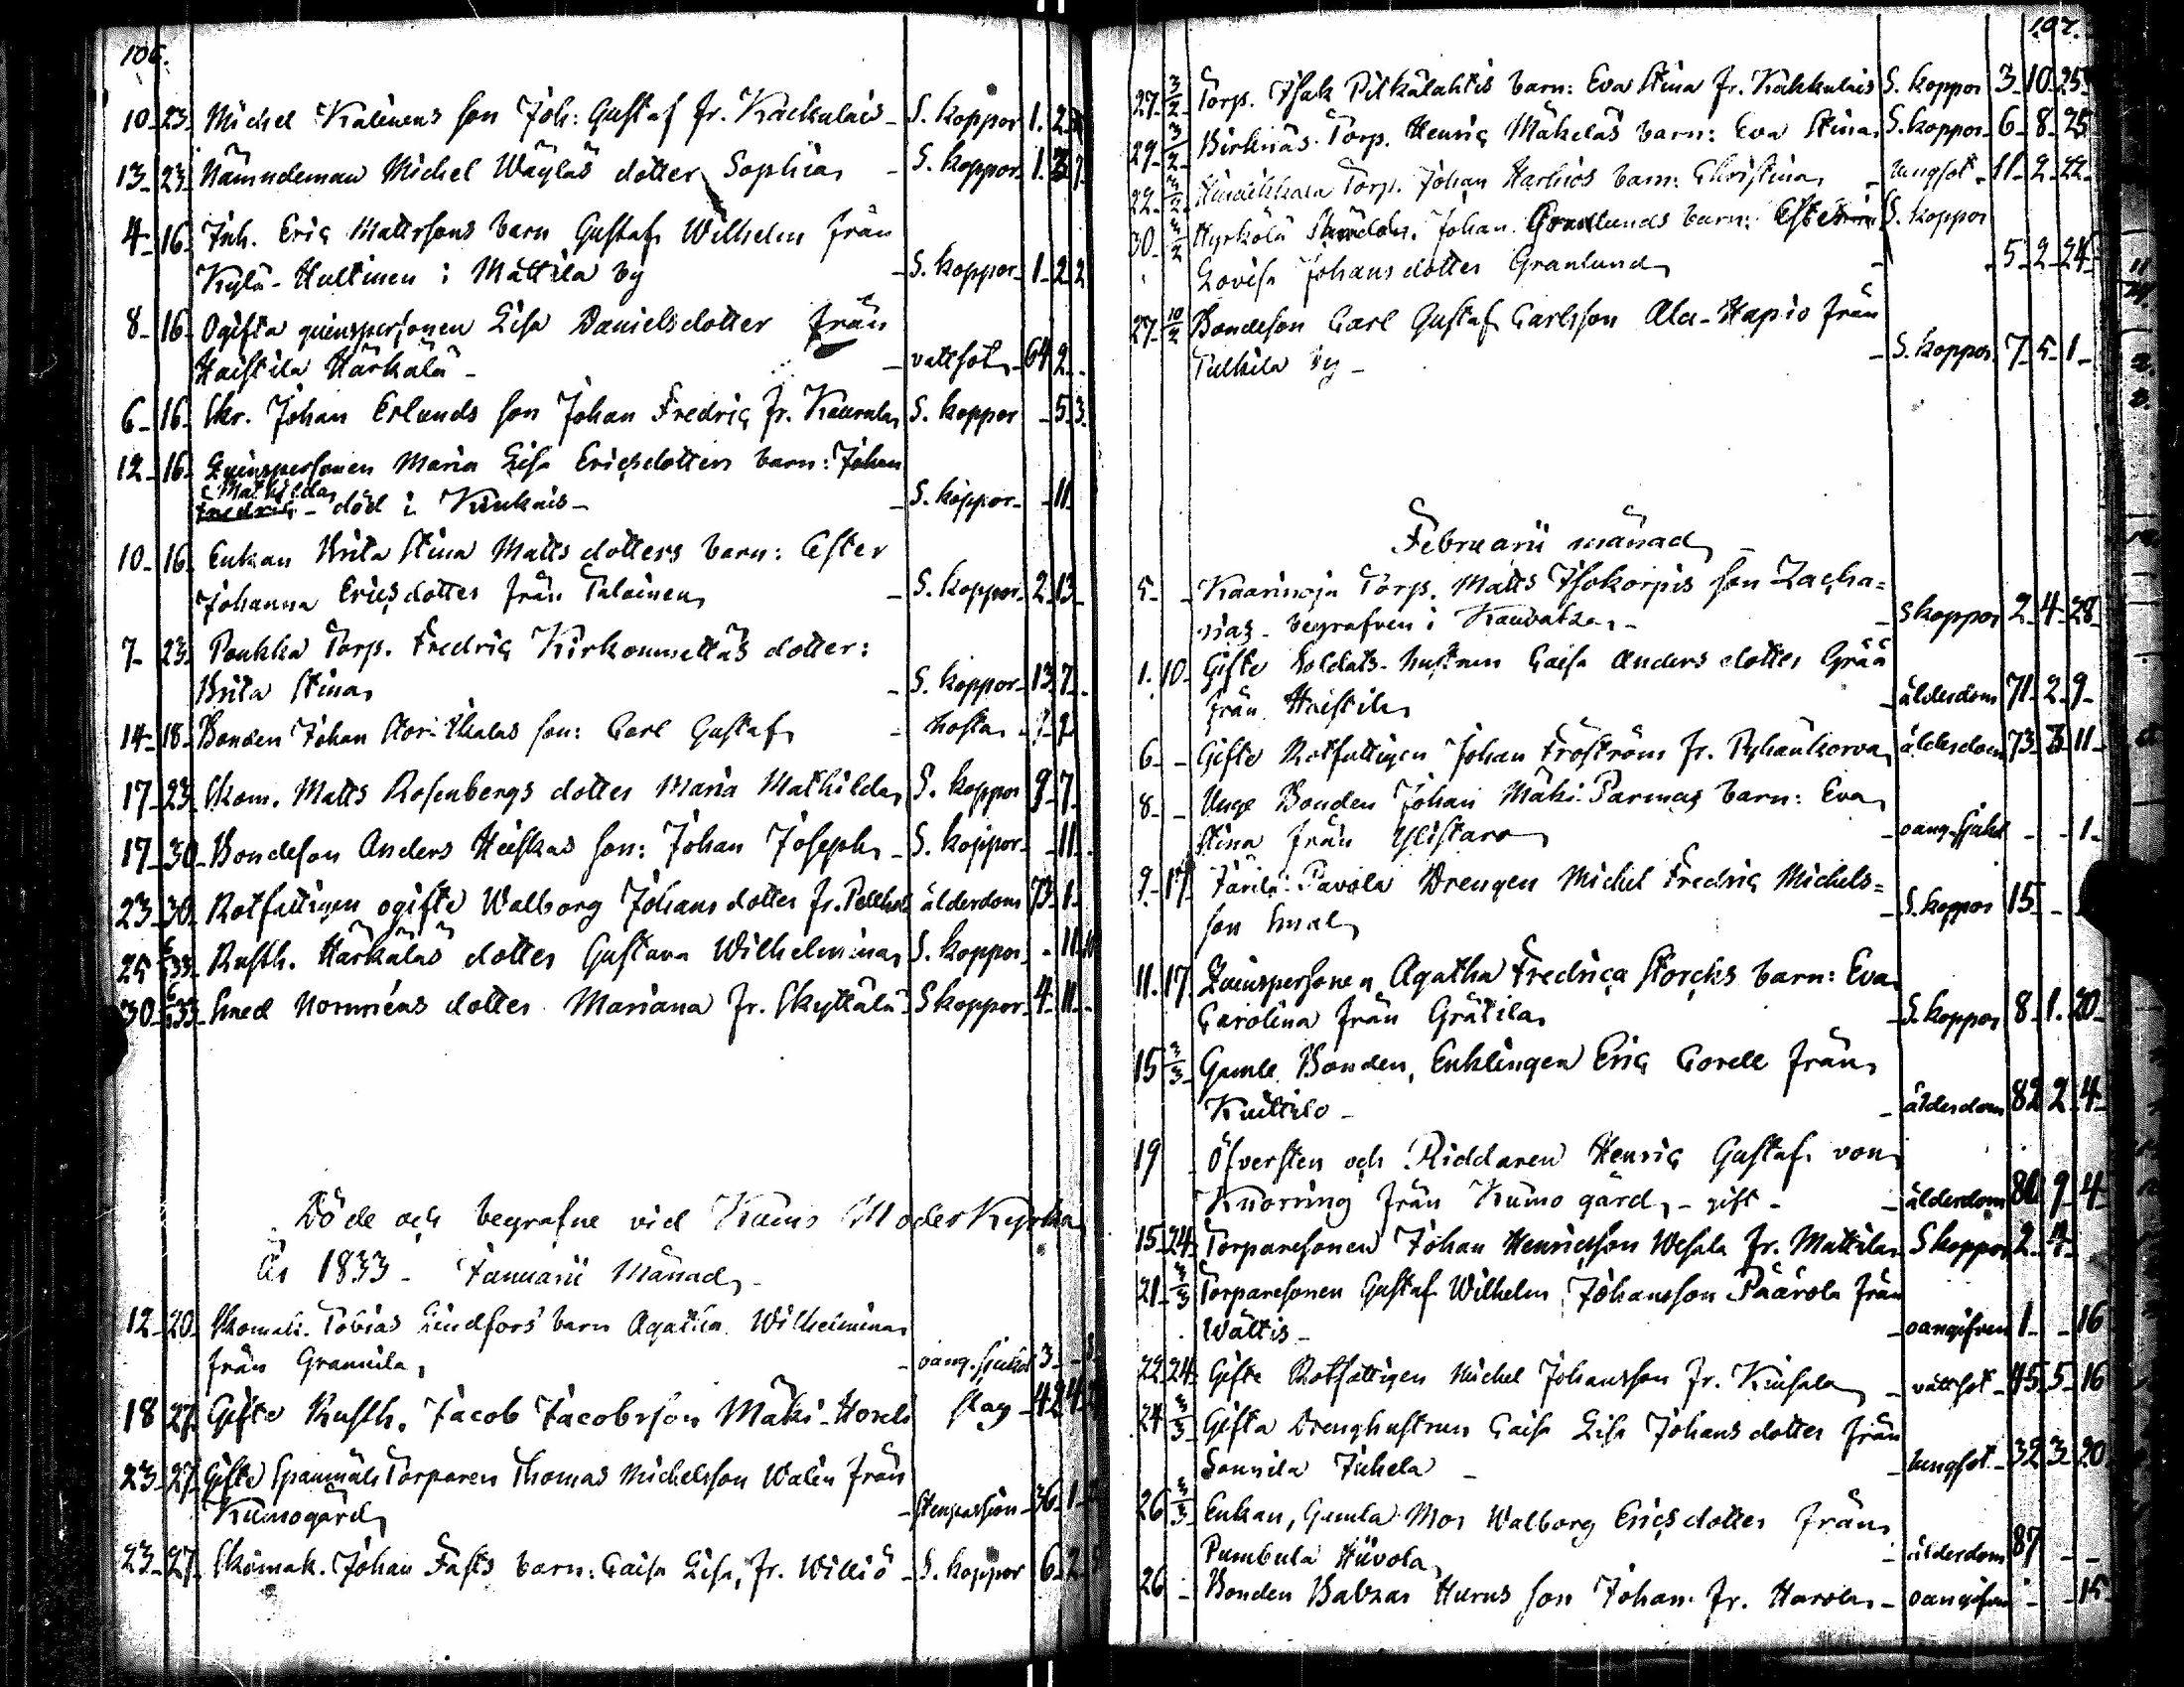 106.
10 23 Michel Kalinens son Joh: Gustaf fr. Kackulais S. koppor 1. 2
13 23 Nämndeman Michel Wäyläs dotter Sophia S. koppor 1. 3
4 16 Inh. Eric Mattssons barn Gustaf Wilhelm från
Kylä-Huttinen i Mattila by S. koppor 1 2 2
8 16 Ogifta qvinspersonen Lisa Danielsdotter från
Haistila Härkälä vattsot 64 2
6 16 Skr. Johan Erlunds son Johan Fredric fr. S. koppor 5 3
12 16 Qvinspersonen Maria Lisa Ericsdotters barn: Johan
Mathilda
Fredric död i S. koppor 11
10 16 Enkan Brita Stina Mattsdotters barn: Ester
Johanna Ericsdotter från S. koppor 2 13
7 23 Paukka Torp. Fredric dotter:
Brita Stina S. koppor 13 7
14 18 Bonden Johan son: Carl Gustaf hosta
17 23 Skom. Matts Rosenbergs dotter Maria Mathilda S. koppor 9 7
17 30 Bondeson Anders son: Johan Joseph S. koppor 11
23 30 Rotfattigen ogifte Walborg Johansdotter fr. ålderdom 73 1
25 Rusth. Härkäläs dotter Gustava Wilhelmina S. koppor 11
30 Smed dotter Mariana fr. Skyttälä S koppor 4 11
Döde och begrafne vid Kumo Moderkyrka
År 1833 - Januarii Månad
12 20 Skomak. Tobias Lindfors barn Agatha Wilhelmina
från Granula oang. sjukd 3
18 27 Gifte Rusth. Jacob Jacobsson Mäki- slag 42 4
23 27 Gifte Spanmåls Torparen Thomas Michelsson Walin från
Kumogård stenpassion 36 1
23 27 Skomak. Johan Fasts barn: Caisa Lisa, fr. Williö S. koppor 6 2
107.
27 3/2 Torp. Isak Pitkälahtis barn: Eva Stina fr. Kakkulais S. koppor 3 10 25
29 3/2 Birknäs Torp. Henric Mäkeläs barn: Eva Stina S. koppor 6 8 25
22 3/2 Torp. Johan Harhios barn: Christina lungsot 11 2 22
30 3/2 Hyrkölä Johan Granlunds barn: S. koppor
Lovisa Johansdotter Granlund 5 2 24
27 10/2 Bondeson Carl Gustaf Carlsson Ala-Hapio från
Tulkila by S. koppor 7 5 1
Februarii månad
5 Kaarinoja Torp. Matts Isokorpis son Zacha=
rias begrafven i Kauvatza S koppor 2 4 28
1. 10 Gifte Soldats-hustrun Caisa Andersdotter Grää
från Haistila ålderdom 71 2 9
6 Gifte Rotfattigen Johan Froström fr. Pyhänkorva ålderdom 73 3 11
8 Unge Bonden Johan Mäki-Parmas barn: Eva
Stina från Ylistaro oang. sjukd 1
9 17 Järilä-Pavola Drengen Michel Fredric Michels=
son Smal S. koppor 15
11. 17 Qvinspersonen Agatha Fredrica Storcks barn: Eva
Carolina från Grätila S. koppor 8 1. 20
15 3/3 Gamle Bonden, Enklingen Eric Corell från
Kuittilo ålderdom 82 2 4
19 Öfversten och Riddaren Henric Gustaf von
Knorring från Kumo gård, gift ålderdom 80 9 4
15 24 Torparesonen Johan Henricsson Wesala fr. Mattila S koppor 2 4
21 3/3 Torparesonen Gustaf Wilhelm Johansson Päärola från
Wättis oangifven 1 16
22 24 Gifte Rotfattigen Michel Johansson fr. vattsot 45 5 16
24 3/3 Gifta Drenghustrun Caisa Lisa Johansdotter från
Sonnila Juhela lungsot 32 3 20
26 3/3 Enkan, Gamla Mor Walborg Ericsdotter från
Pumbula Hiivola ålderdom 87
26 Bonden Balzar Hurus son Johan fr. Harola oangifven 15